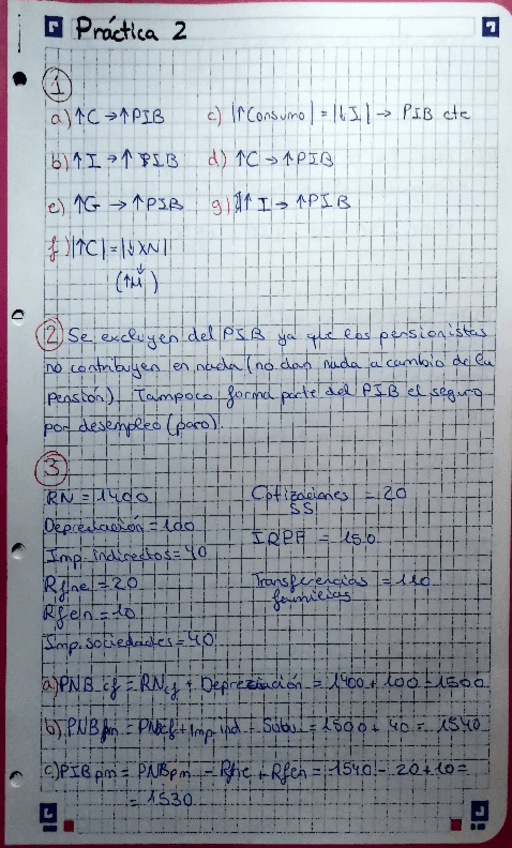 Práctica 2
①
a) ↑C → ↑PIB c) |↑Consumo| = |↓I| → PIB cte
b) ↑I → ↑ PIB d) ↑C → ↑PIB
e) ↑G → ↑PIB g) ↑ I → ↑PIB
f) |↑C| = |↓XN|
(↑M)
② Se excluyen del PIB ya que los pensionistas
no contribuyen en nada (no dan nada a cambio de la
pensión). Tampoco forma parte del PIB el seguro
por desempleo (paro).
③
RN = 1400 Cotizaciones = 20
SS
Depreciación = 100
IRPF = 150
Imp. indirectos = 40
Rfne = 20 Transferencias = 110
familias
Rfen = 10
Imp. sociedades = 40
a) PNBcf = RNcf + Depreciación = 1400 + 100 = 1500
b) PNBpm = PNBcf + Imp ind - Subv = 1500 + 40 = 1540
c) PIBpm = PNBpm - Rfne + Rfen = 1540 - 20 + 10 =
= 1530